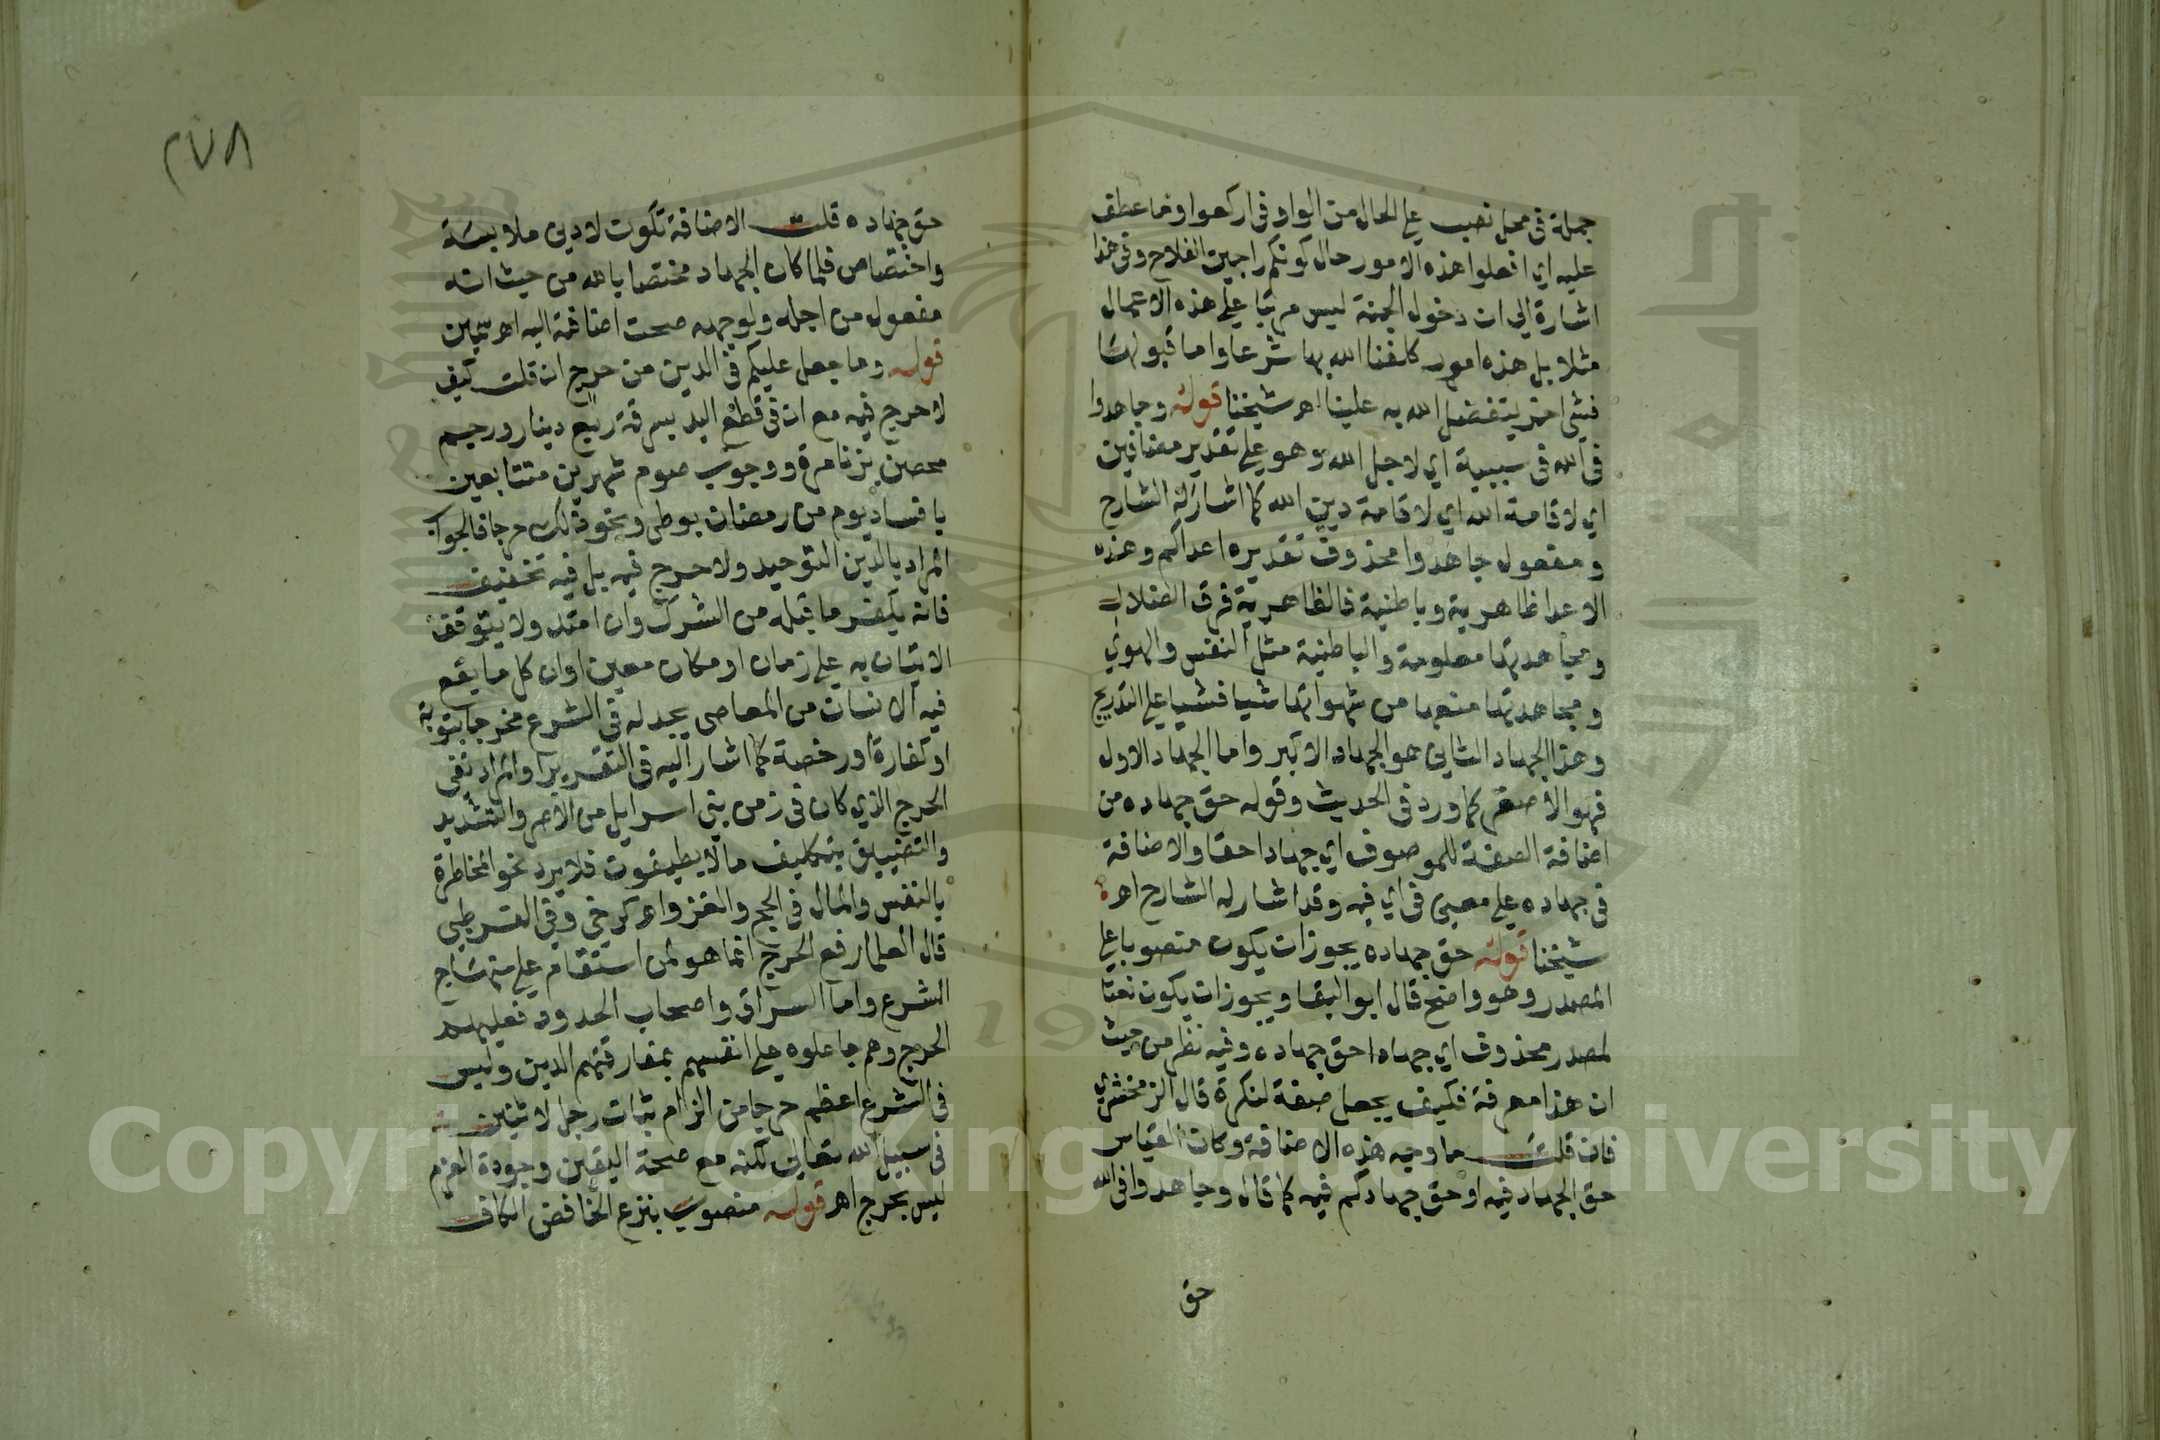 جملة في محل نصب على الحال من الواو في اركعوا وما عطف
عليه اي افعلوا هذه الامور حال كونكم راجين الفلاح وفي هذا
اشارة الى ان دخول الجنة ليس مرتبا على هذه الاعمال
مثلا بل هذه امور كلفنا الله بها شرعا واما قبولها
فشي اخر يتفضل الله به علينا اهـ شيخنا قوله وجاهدوا
في الله في سببية اي لاجل الله وهو على تقدير مضافين
اي لاقامة الله اي لاقامة دين الله كما اشار له الشارح
ومفعول جاهدوا محذوف تقديره اعداكم وهذه
الاعدا ظاهرية وباطنية فالظاهرية فرق الضلال
ومجاهدتها معلومة والباطنية مثل النفس والهوي
ومجاهدتها منعها من شهواتها شيا فشيا على التدريج
وهذا الجهاد الثاني هو الجهاد الاكبر واما الجهاد الاول
فهو الاصغر كما ورد في الحديث وقوله حق جهاده من
اضافة الصفة للموصوف اي جهادا حقا والاضافة
في جهاده على معنى في اي فيه وقد اشار له الشارح اهـ
شيخنا قوله حق جهاده يجوز ان يكون منصوبا على
المصدر وهو واضح قال ابو البقا ويجوز ان يكون نعتا
لمصدر محذوف اي جهادا حق جهاده وفيه نظر من حيث
ان هذا معرفة فكيف يجعل صفة لنكرة قال الزمخشري
فان قلت ما وجه هذه الاضافة وكان القياس
حق الجهاد فيه او حق جهادكم فيه كما قال وجاهدوا في الله
حق
٢٧٨
حق جهاده قلت الاضافة تكون لادنى ملابسة
واختصاص فلما كان الجهاد مختصا بالله من حيث انه
مفعول من اجله ولوجهه صحت اضافته اليه اهـ سمين
قوله وما جعل عليكم في الدين من حرج ان قلت كيف
لا حرج فيه مع ان في قطع اليد بسرقة ربع دينار ورجم
محصن بزنا مرة ووجوب صوم شهرين متتابعين
بافساد يوم من رمضان بوطي ونحو ذلك حرجا فالجواب
المراد بالدين التوحيد ولا حرج فيه بل فيه تخفيف
فانه يكفر ما قبله من الشرك وان امتد ولا يتوقف
الاتيان به على زمان او مكان معين او ان كل ما يقع
فيه الانسان من المعاصى يجد له في الشرع مخرجا بتوبة
او كفارة او رخصة كما اشار اليه في التقرير او المراد نفى
الحرج الذي كان في زمن بني اسرايل من الاصر والتشديد
والتضييق بتكليف ما لا يطيقون فلا يرد نحو المخاطرة
بالنفس والمال في الحج والغزو اهـ كرخي وفي القرطبي
قال العلما رفع الحرج انما هو لمن استقام على منهاج
الشرع واما السراق واصحاب الحدود فعليهم
الحرج وهم جاعلوه على انفسهم بمفارقتهم الدين وليس
في الشرع اعظم حرجا من الزام ثبات رجل لاثنين
في سبيل الله تعالى لكنه مع صحة اليقين وجودة العزم
ليس بحرج اهـ قوله منصوب بنزع الخافض الكاف
Copyright © King Saud University
جامعة الملك سعود
1957